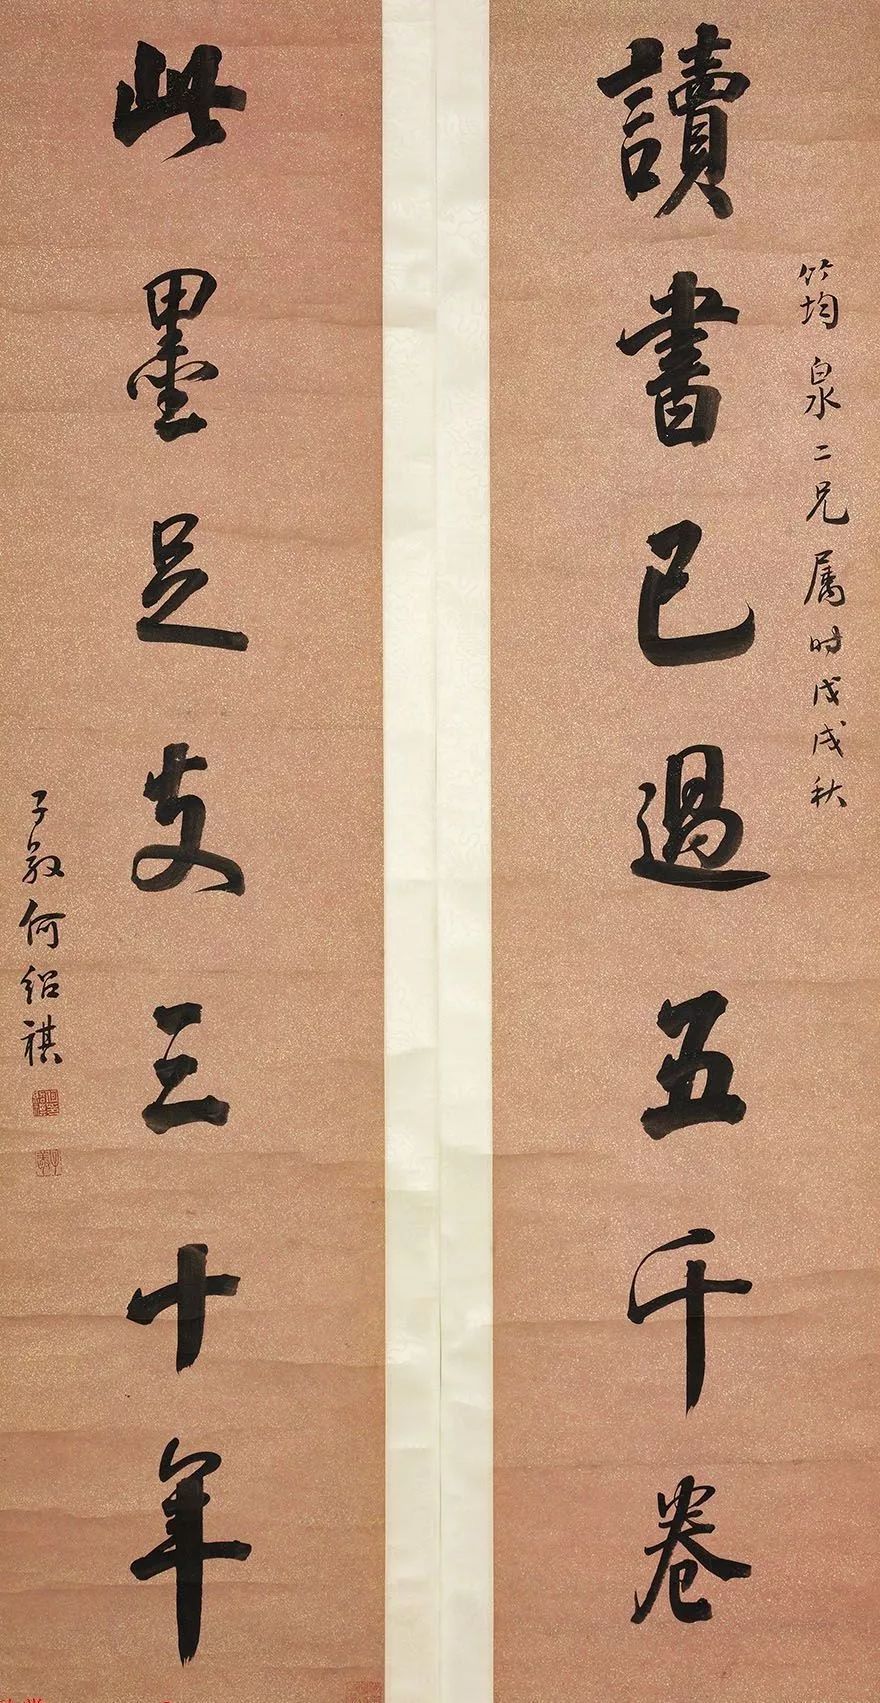 讀書已過五千卷
筠泉二兄属时戊戌秋
此墨足支三十年
子敬何绍祺